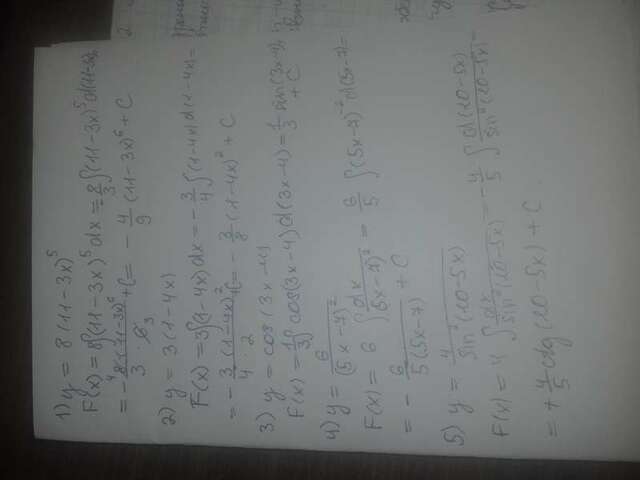 1) y = 8(11-3x)^5
F(x) = 8∫(11-3x)^5 dx = -8/3 ∫(11-3x)^5 d(11-3x) =
= -8(11-3x)^6/(3·6) + C = -4/9 (11-3x)^6 + C
2) y = 3(1-4x)
F(x) = 3∫(1-4x)dx = -3/4 ∫(1-4x)d(1-4x) =
= -3/4 (1-4x)^2/2 + C = -3/8 (1-4x)^2 + C
3) y = cos(3x-4)
F(x) = 1/3 ∫cos(3x-4)d(3x-4) = 1/3 sin(3x-4) + C
4) y = 6/(5x-7)^2
F(x) = 6∫dx/(5x-7)^2 = 6/5 ∫(5x-7)^-2 d(5x-7) =
= -6/5(5x-7) + C
5) y = 4/sin^2(10-5x)
F(x) = 4∫dx/sin^2(10-5x) = -4/5 ∫d(10-5x)/sin^2(10-5x) =
= +4/5 ctg(10-5x) + C.